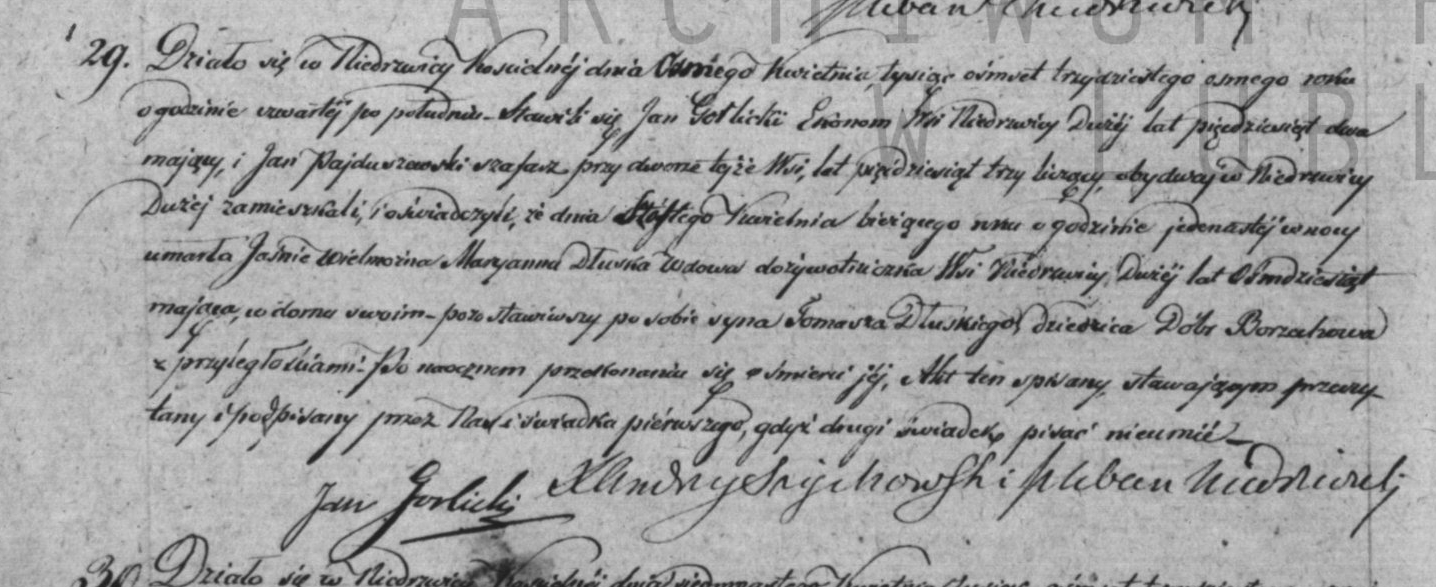 Pleban Niedrzwicki
29. Działo się w Niedrzwicy Kościelnéj dnia Osmego Kwietnia, tysiąc ośmset trzydziestego osmego roku
o godzinie czwartéj po południu_ Stawili się Jan Gorlicki Ekonom Wsi Niedrzwicy Dużéj lat pięćdziesiąt dwa
mający, i Jan Pajduszewski szafarz przy dworze tejże Wsi, lat pięćdziesiąt trzy liczący, obydwaj w Niedrzwicy
Dużéj zamieszkali, i oświadczyli, że dnia Szóstego Kwietnia bieżącego roku o godzinie jedenastéj w nocy
umarła Jaśnie Wielmożna Maryanna Dłuska Wdowa dożywotniczka Wsi Niedrzwicy Dużéj lat Ośmdziesiąt
mająca, w domu swoim_ pozostawiwszy po sobie syna Tomasza Dłuskiego, dziedzica Dóbr Borzechowa
z przyległościami_ Po naocznem przekonaniu się o śmierci jéj, Akt ten spisany, stawającym przeczy_
tany i podpisany przez Nas i świadka piérwszego, gdyż drugi świadek pisać nieumié_
Jan Gorlicki XAndrzej Pleban Niedrzwicki
30. Działo się w Niedrzwicy Kościelnéj dnia siedmnastego Kwietnia
ARCHIWUM P
W LUBL